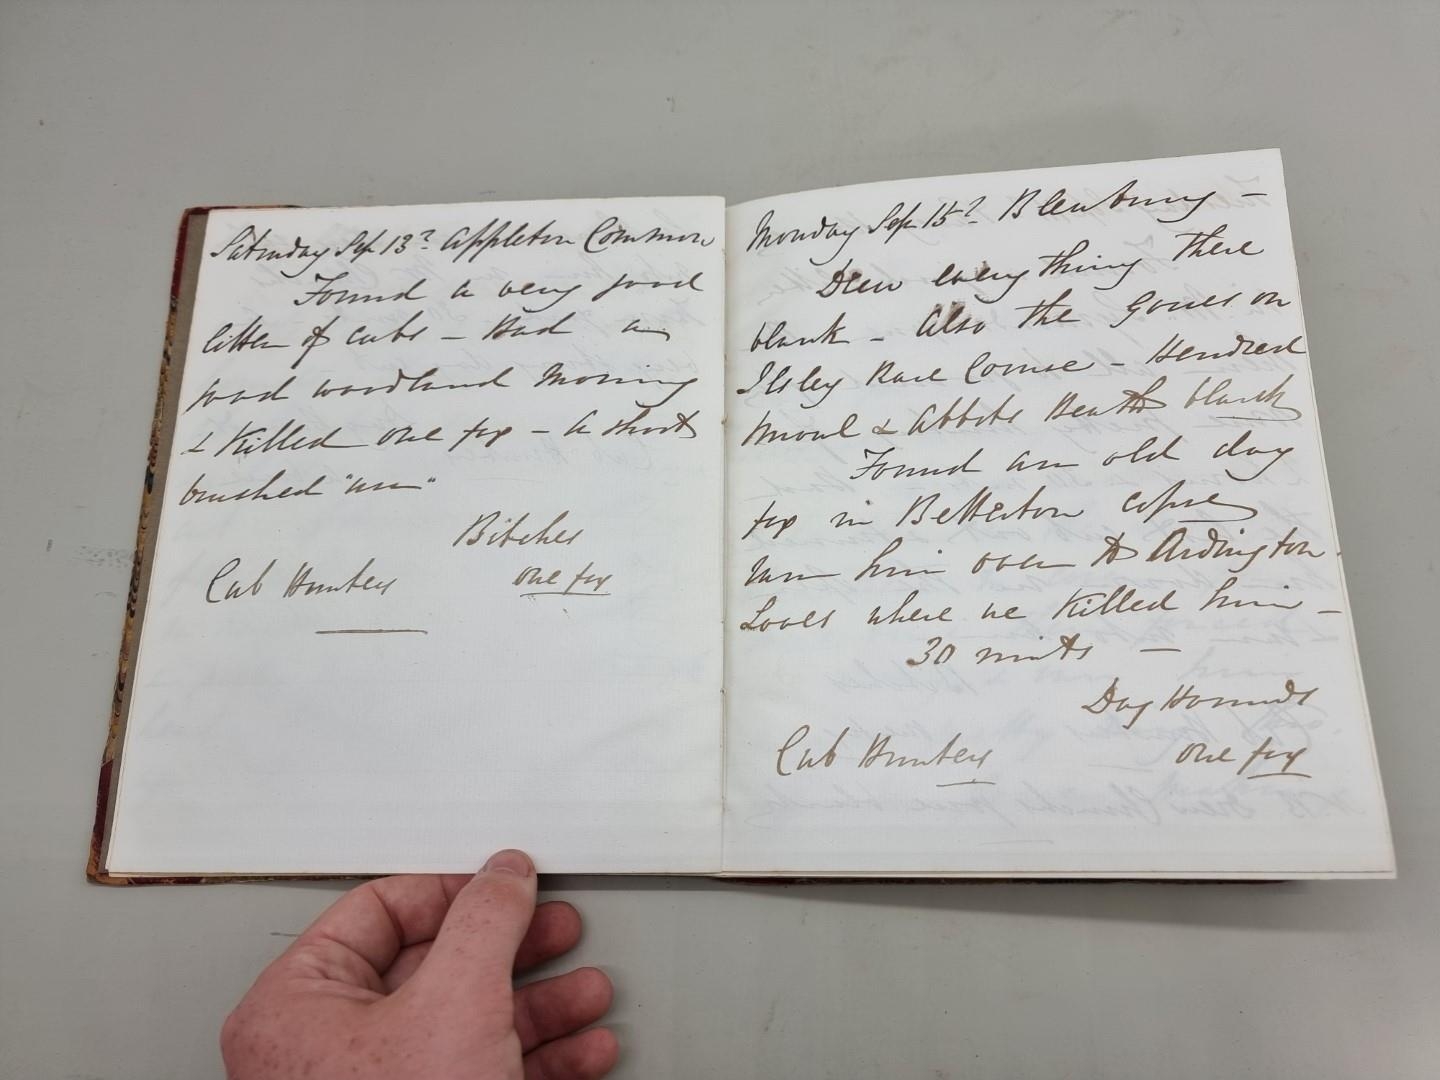 Saturday Sep 13th Appleton Common
Found a very good
litter of cubs – Had a
good woodland morning
& Killed one fox – a short
brushed "un"
Bitches
Cub Hunters one fox
Monday Sep 15th Blewbury –
Drew every thing there
blank – Also the Gorses on
Ilsley Race Course – Hendred
Moul & Abbots Heath blank
Found an old dog
fox in Betterton copse
ran him over to Ardington
Loves where we Killed him –
30 mints –
Dog Hounds
Cub Hunters one fox